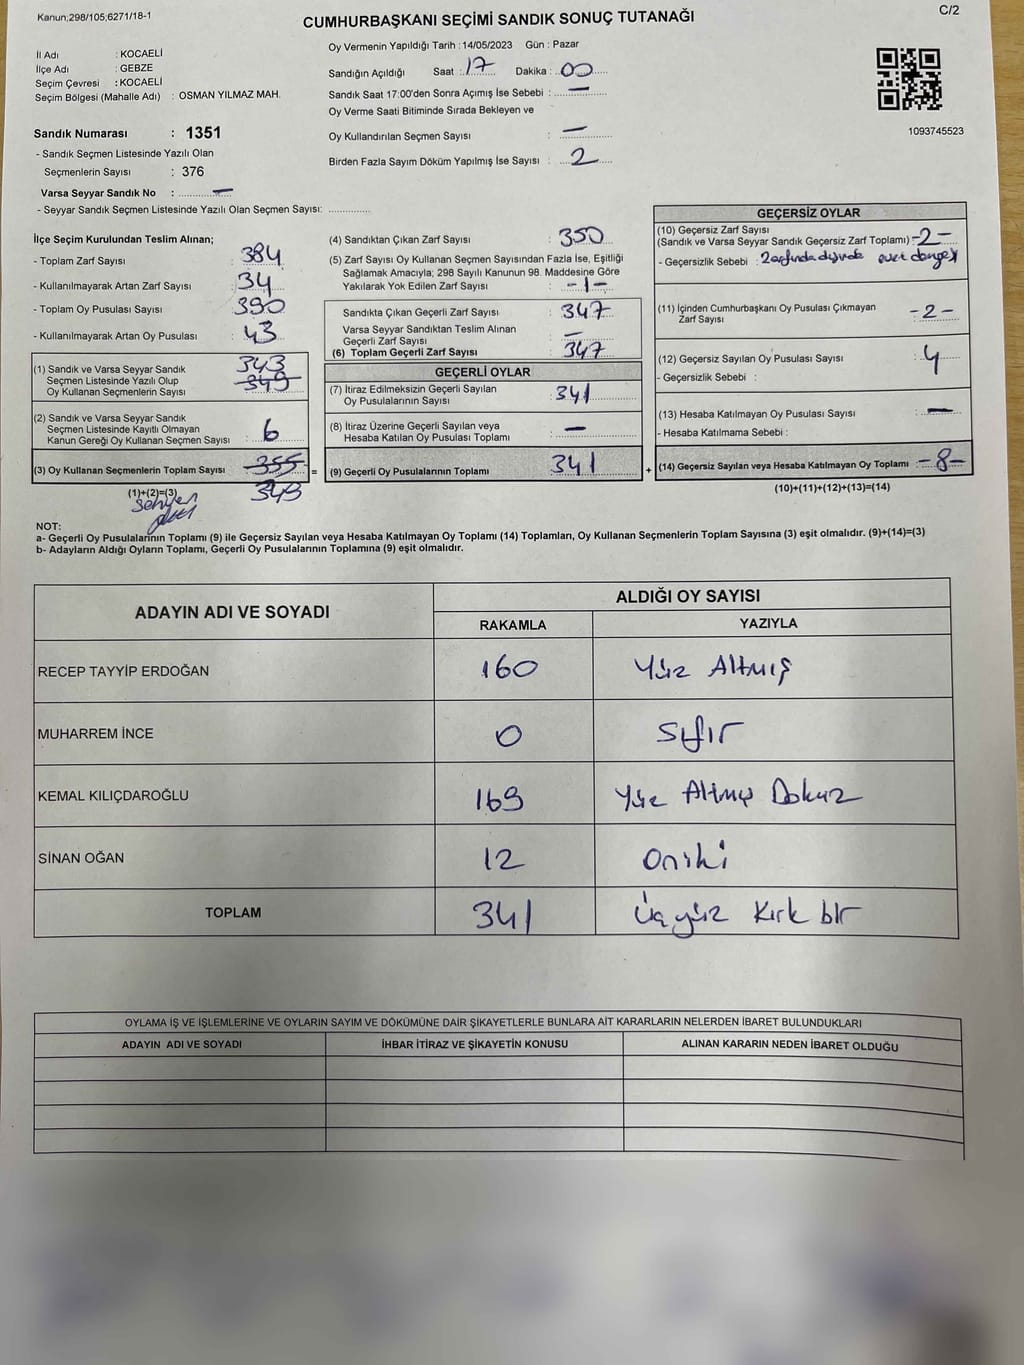 Kanun;298/105;6271/18-1
CUMHURBAŞKANI SEÇİMİ SANDIK SONUÇ TUTANAĞI
C/2
İl Adı : KOCAELİ
İlçe Adı : GEBZE
Seçim Çevresi : KOCAELİ
Seçim Bölgesi (Mahalle Adı) : OSMAN YILMAZ MAH.
Sandık Numarası : 1351
- Sandık Seçmen Listesinde Yazılı Olan
Seçmenlerin Sayısı : 376
Varsa Seyyar Sandık No : –
- Seyyar Sandık Seçmen Listesinde Yazılı Olan Seçmen Sayısı: ..............
Oy Vermenin Yapıldığı Tarih : 14/05/2023 Gün : Pazar
Sandığın Açıldığı Saat : 17 Dakika : 00
Sandık Saat 17:00'den Sonra Açımış İse Sebebi : –
Oy Verme Saati Bitiminde Sırada Bekleyen ve
Oy Kullandırılan Seçmen Sayısı : –
Birden Fazla Sayım Döküm Yapılmış İse Sayısı : 2
1093745523
İlçe Seçim Kurulundan Teslim Alınan;
- Toplam Zarf Sayısı : 384
- Kullanılmayarak Artan Zarf Sayısı : 34
- Toplam Oy Pusulası Sayısı : 390
- Kullanılmayarak Artan Oy Pusulası : 43
(1) Sandık ve Varsa Seyyar Sandık 343
Seçmen Listesinde Yazılı Olup 349
Oy Kullanan Seçmenlerin Sayısı
(2) Sandık ve Varsa Seyyar Sandık
Seçmen Listesinde Kayıtlı Olmayan
Kanun Gereği Oy Kullanan Seçmen Sayısı : 6
(3) Oy Kullanan Seçmenlerin Toplam Sayısı 355 =
(1)+(2)=(3) 349
(4) Sandıktan Çıkan Zarf Sayısı : 350
(5) Zarf Sayısı Oy Kullanan Seçmen Sayısından Fazla İse, Eşitliği
Sağlamak Amacıyla; 298 Sayılı Kanunun 98. Maddesine Göre
Yakılarak Yok Edilen Zarf Sayısı : -1-
Sandıkta Çıkan Geçerli Zarf Sayısı : 347
Varsa Seyyar Sandıktan Teslim Alınan
Geçerli Zarf Sayısı : –
(6) Toplam Geçerli Zarf Sayısı : 347
GEÇERLİ OYLAR
(7) İtiraz Edilmeksizin Geçerli Sayılan
Oy Pusulalarının Sayısı : 341
(8) İtiraz Üzerine Geçerli Sayılan veya
Hesaba Katılan Oy Pusulası Toplamı : –
(9) Geçerli Oy Pusulalarının Toplamı : 341 +
GEÇERSİZ OYLAR
(10) Geçersiz Zarf Sayısı
(Sandık ve Varsa Seyyar Sandık Geçersiz Zarf Toplamı) : -2-
- Geçersizlik Sebebi : 2 zarfında dışında evet
(11) İçinden Cumhurbaşkanı Oy Pusulası Çıkmayan
Zarf Sayısı : -2-
(12) Geçersiz Sayılan Oy Pusulası Sayısı : 4
- Geçersizlik Sebebi :
(13) Hesaba Katılmayan Oy Pusulası Sayısı : –
- Hesaba Katılmama Sebebi :
(14) Geçersiz Sayılan veya Hesaba Katılmayan Oy Toplamı : -8-
(10)+(11)+(12)+(13)=(14)
NOT:
a- Geçerli Oy Pusulalarının Toplamı (9) ile Geçersiz Sayılan veya Hesaba Katılmayan Oy Toplamı (14) Toplamları, Oy Kullanan Seçmenlerin Toplam Sayısına (3) eşit olmalıdır. (9)+(14)=(3)
b- Adayların Aldığı Oyların Toplamı, Geçerli Oy Pusulalarının Toplamına (9) eşit olmalıdır.
ADAYIN ADI VE SOYADI
ALDIĞI OY SAYISI
RAKAMLA YAZIYLA
RECEP TAYYİP ERDOĞAN 160 Yüz Altmış
MUHARREM İNCE 0 Sıfır
KEMAL KILIÇDAROĞLU 169 Yüz Altmış Dokuz
SİNAN OĞAN 12 Oniki
TOPLAM 341 Üçyüz Kırk bir
OYLAMA İŞ VE İŞLEMLERİNE VE OYLARIN SAYIM VE DÖKÜMÜNE DAİR ŞİKAYETLERLE BUNLARA AİT KARARLARIN NELERDEN İBARET BULUNDUKLARI
ADAYIN ADI VE SOYADI İHBAR İTİRAZ VE ŞİKAYETİN KONUSU ALINAN KARARIN NEDEN İBARET OLDUĞU